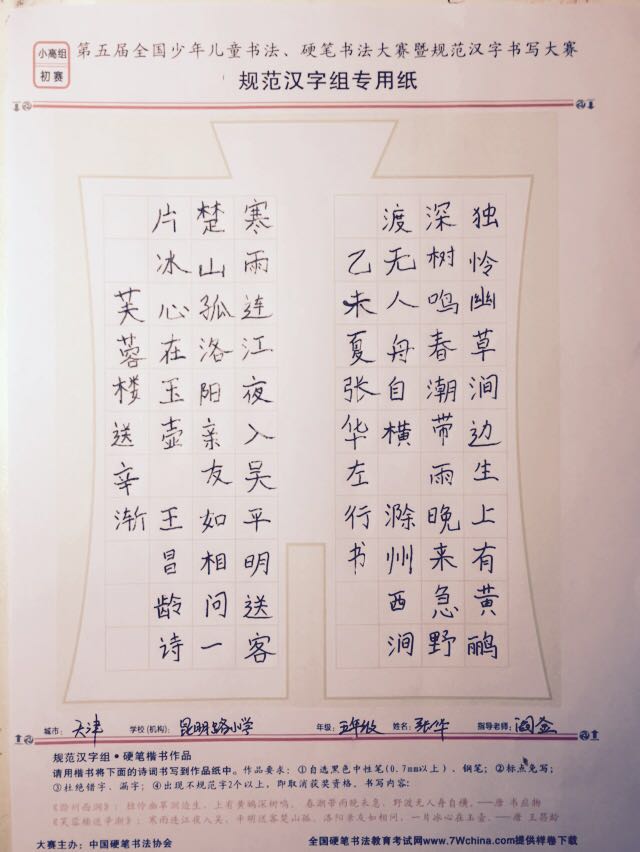 小高组
初赛
第五届全国少年儿童书法、硬笔书法大赛暨规范汉字书写大赛
规范汉字组专用纸
独怜幽草涧边生上有黄鹂
深树鸣春潮带雨晚来急野
渡无人舟自横 滁州西涧
乙未夏张华左行书
寒雨连江夜入吴平明送客
楚山孤洛阳亲友如相问一
片冰心在玉壶 王昌龄诗
芙蓉楼送辛渐
城市：天津 学校(机构)：昆明路小学 年级：五年级 姓名：张华 指导老师：阎
规范汉字组·硬笔楷书作品
请用楷书将下面的诗词书写到作品纸中。作品要求：①自选黑色中性笔(0.7mm以上)、钢笔；②标点免写；
③杜绝错字、漏字；④出现不规范字2个以上，即取消获奖资格。书写内容：
《滁州西涧》：独怜幽草涧边生，上有黄鹂深树鸣。春潮带雨晚来急，野渡无人舟自横。—唐 韦应物
《芙蓉楼送辛渐》：寒雨连江夜入吴，平明送客楚山孤。洛阳亲友如相问，一片冰心在玉壶。—唐 王昌龄
大赛主办：中国硬笔书法协会 全国硬笔书法教育考试网www.7Wchina.com提供样卷下载